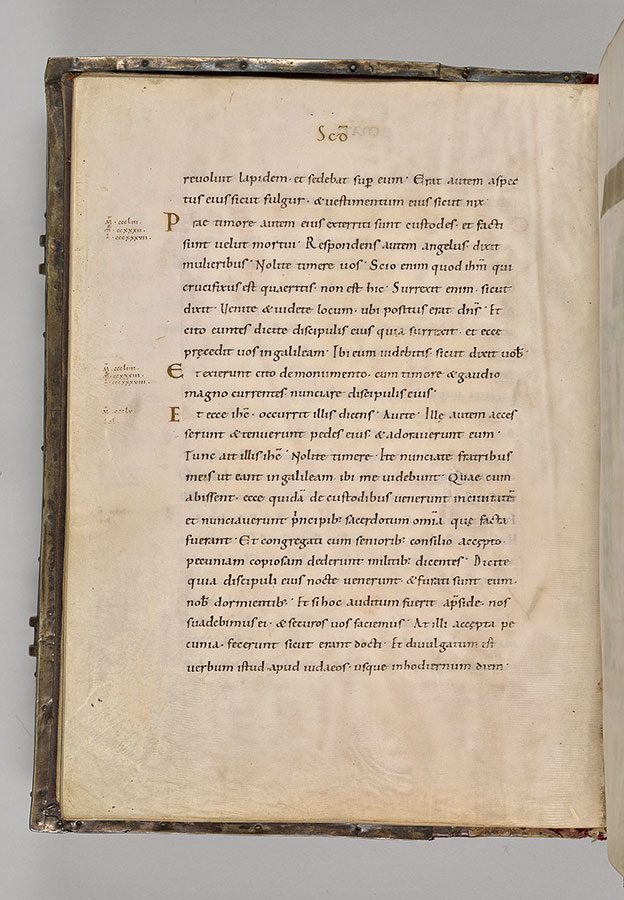 Scd̄
reuoluit lapidem· et sedebat sup̄ eum· Erat autem aspec
tus eius sicut fulgur· & uestimentum eius sicut nix·
P rae timore autem eius exterriti sunt custodes· et facti
sunt uelut mortui· Respondens autem angelus· dixit
mulieribus· Nolite timere uos· Scio enim quod ihm̄ qui
crucifixus est quaeritis· non est hic· Surrexit enim· sicut
dixit· Uenite & uidete locum· ubi positus erat dn̄s· Et
cito euntes dicite discipulis eius quia surrexit· et ecce
precedit uos in galileam· Ibi eum uidebitis· sicut dixit uob̄·
E t exierunt cito de monumento· cum timore & gaudio
magno currentes nunciare discipulis eius·
E t ecce ihc̄· occurrit illis dicens· Auete· Ille autem acces
serunt & tenuerunt pedes eius· & adorauerunt eum·
Tunc ait illis ihc̄· Nolite timere· Ite nunciate fratribus
meis ut eant in galileam· ibi me uidebunt· Quae cum
abissent· ecce quidā de custodibus uenerunt in ciuitatē
et nunciauerunt p̄ncipib: sacerdotum omīa que facta
fuerant· Et congregati cum seniorib: consilio accepto·
pecuniam copiosam dederunt militib: dicentes· Dicite
quia discipuli eius nocte uenerunt· & furati sunt eum·
nob̄ dormientib:· Et si hoc auditum fuerit ap̄side· nos
suadebimus ei· & securos uos faciemus· At illi accepta pe
cunia· fecerunt sicut erant docti· Et diuulgatum est
uerbum istud apud iudaeos· usque in hodiernum diem·